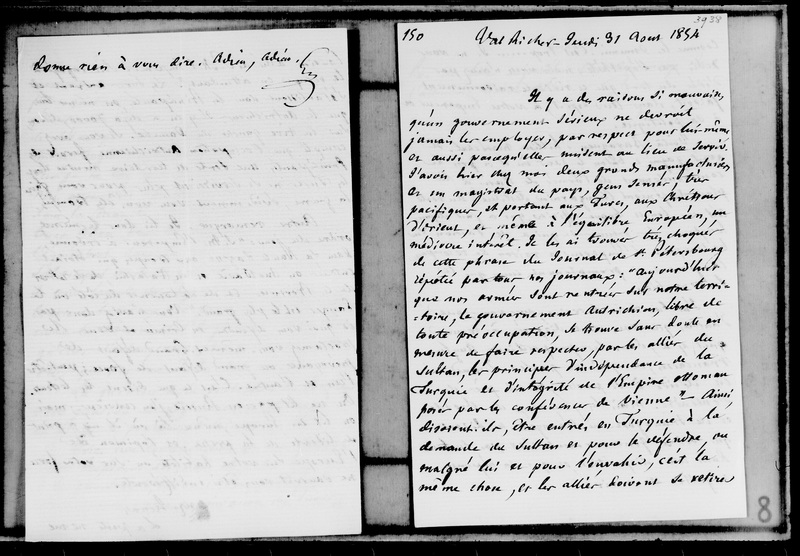 donne rien à vous dire. Adieu, adieu.
3938
150 Val Richer - Jeudi 31 Aout 1854
Il y a des raisons si mauvaises
qu'un gouvernement sérieux ne devroit
jamais les employer, par respect pour lui-même
et aussi parcequ'elles nuisent au lieu de servir.
J'avois hier chez moi deux grands manufacturiers
et un magistrat du pays, gens sensés, très
pacifiques, et portant aux Turcs, aux Chrétiens
d'Orient, et même à l'équilibre Européen, un
médiocre intérêt. Je les ai trouvés très choqués
de cette phrase du Journal de St Pétersbourg
répétée par tous nos journaux : "Aujourd'hui
que nos armées sont rentrées sur notre terri-
-toire, le gouvernement Autrichien, libre de
toute préoccupation, se trouve sans doute en
mesure de faire respecter, par les alliés du
Sultan, les principes d'indépendance de la
Turquie et d'intégrité de l'Empire ottoman
posés par les conférences de Vienne" - Ainsi
disoient-ils, être entrés en Turquie à la
demande du Sultan et pour le défendre, ou
malgré lui et pour l'envahir, c'est la
même chose, et les alliés doivent se retirer
8